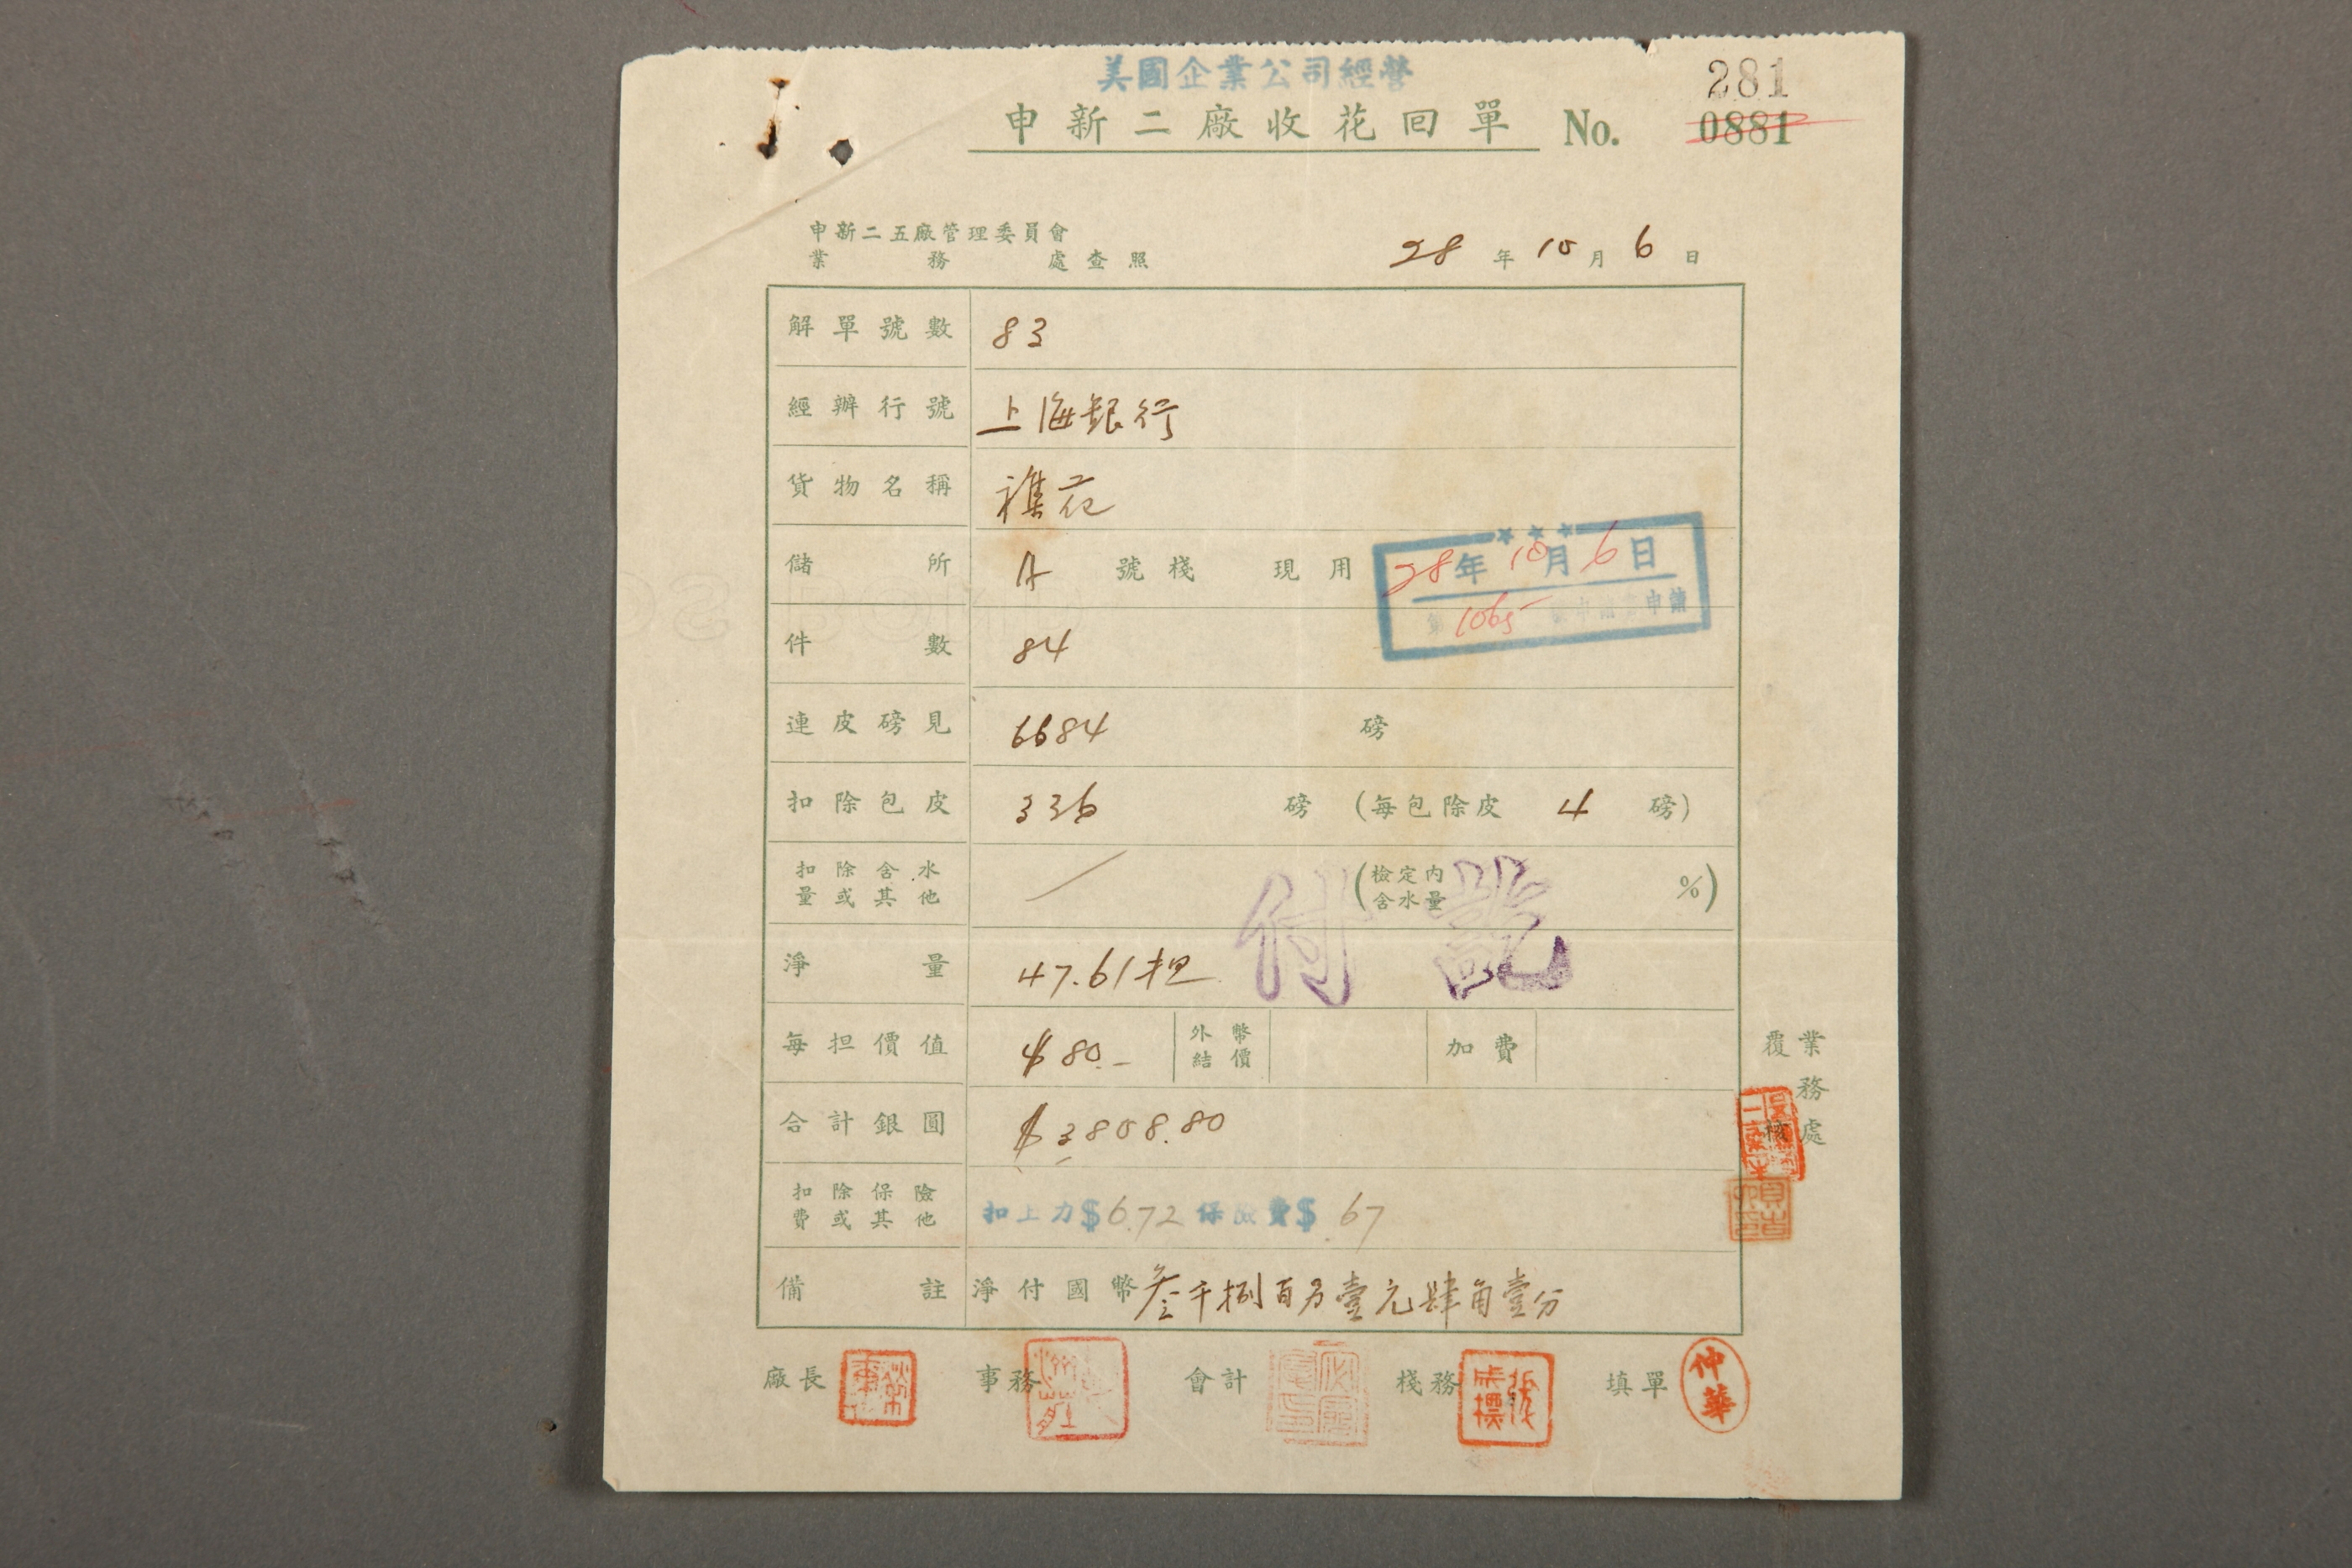 美國企業公司經營
281
申新二廠收花回單 No. 0881
申新二五廠管理委員會
業務處查照
28年10月6日
解單號數 83
經辦行號 上海銀行
貨物名稱 襍花
儲所 A 號棧 現用
28年10月6日
1065 申請
件數 84
連皮磅見 6684 磅
扣除包皮 336 磅 (每包除皮 4 磅)
扣除含水量或其他 (檢定內含水量 %)
付訖
淨量 47.61担
每担價值 $80.- 外幣結價 加費
合計銀圓 $3808.80
扣除保險費或其他 扣上力$6.72 保險費$.67
備註 淨付國幣叁千捌百另壹元肆角壹分
業務處覆核
廠長 事務 會計 棧務 填單
仲華